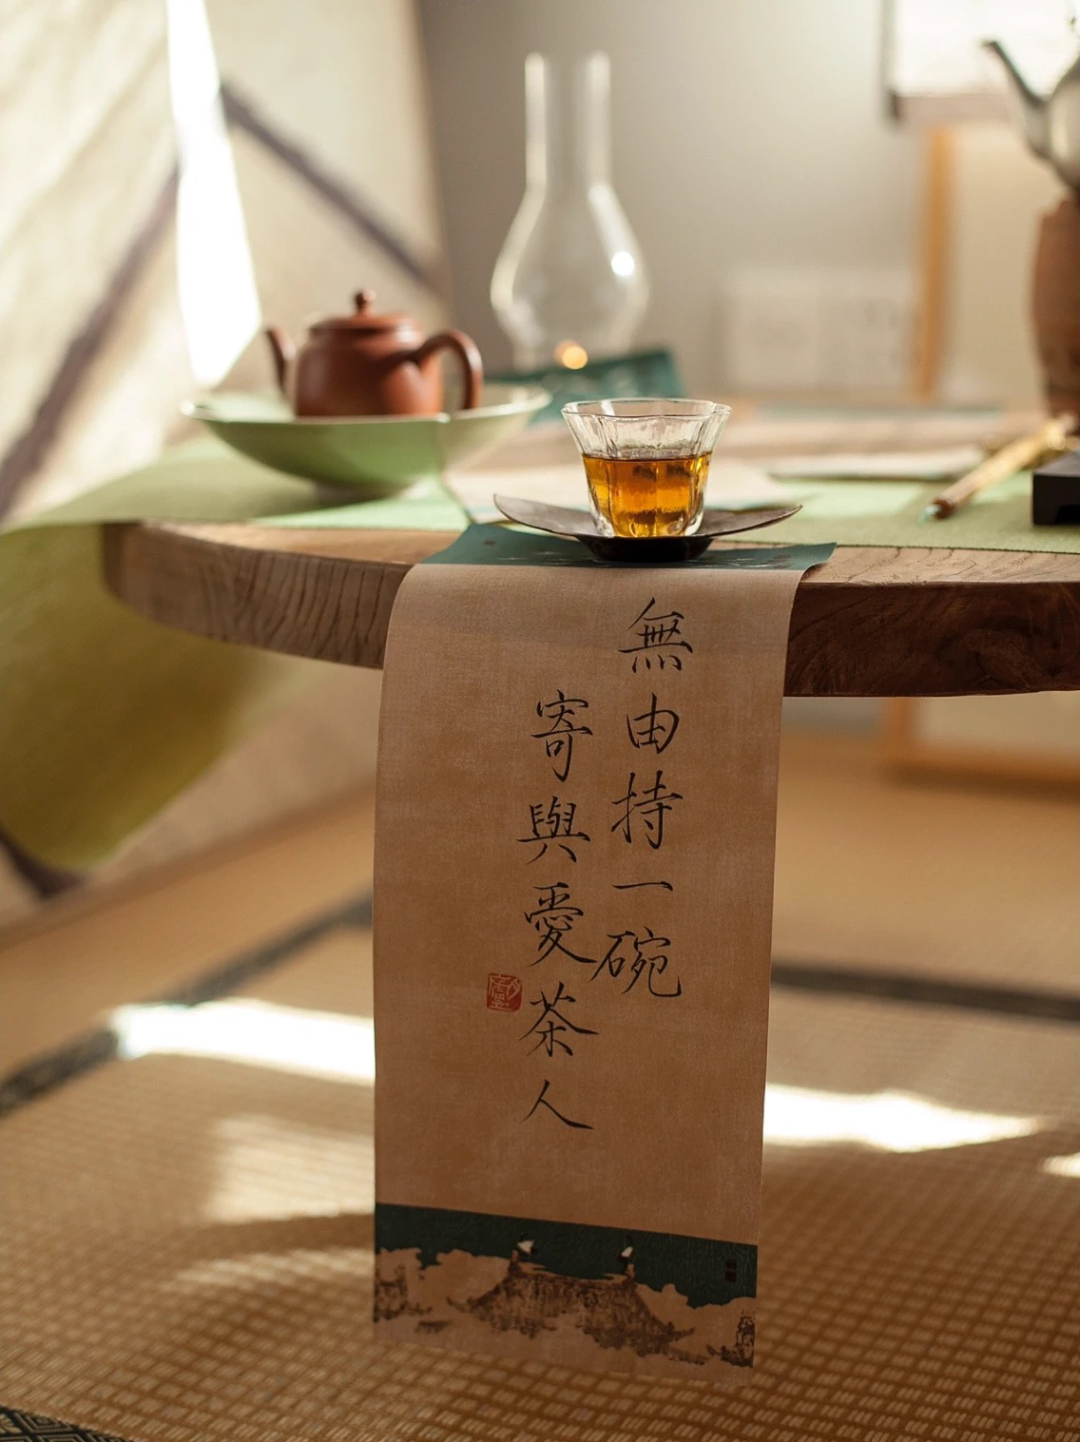 無由持一碗
寄與愛茶人